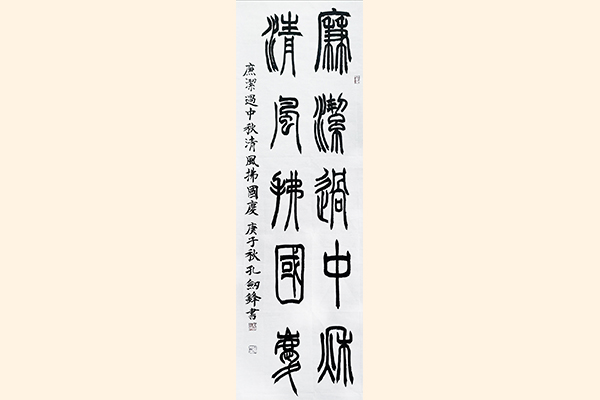 廉潔過中秋
清風拂國慶
廉潔過中秋清風拂國慶 庚子秋孔劒鋒書